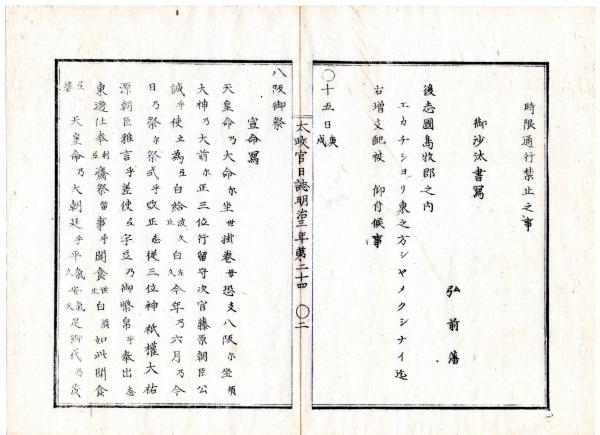 時限通行禁止之事
御沙汰書寫
弘前藩
後志國島牧郡之内
エカチシヨリ東之方シヤメクシナイ迄
右増支配被 仰付候事
〇十五日庚戌
太政官日誌明治三年第二十四 〇二
八阪御祭
宣命寫
天皇命乃大命尓坐世掛卷母恐支八阪尓坐須
大神乃大前尓正三位行留守次官藤原朝臣公
誠乎使止為弖白給波久白左久今年乃六月乃今
日乃祭尓祭式乎改正志従三位神祇權大祐
源朝臣雅言乎差使弖宇豆乃御幣帛乎奉出志
東遊仕奉利弖齋祭留事乎聞食世止白須如此聞食弖波
天皇命乃大朝廷乎平氣久安氣久足御代乃茂